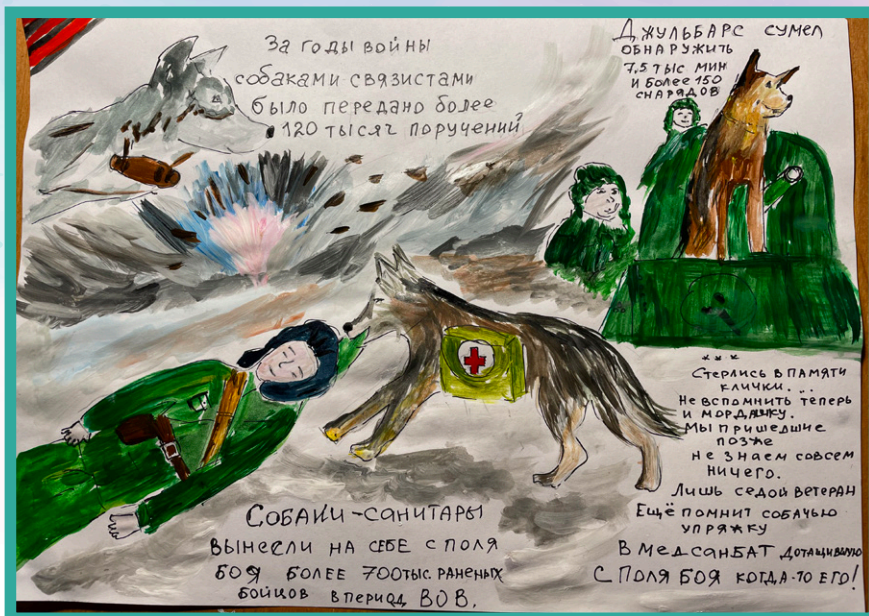 За годы войны
собаками связистами
было передано более
120 тысяч поручений
Джульбарс сумел
обнаружить
7,5 тыс мин
и более 150
снарядов
***
Стерлись в памяти
клички...
Не вспомнить теперь
и мордашку.
Мы пришедшие
позже
не знаем совсем
ничего.
Лишь седой ветеран
Ещё помнит собачью
упряжку
В медсанбат дотащившую
с поля боя когда-то его!
Собаки-санитары
вынесли на себе с поля
боя более 700 тыс. раненых
бойцов в период ВОВ.